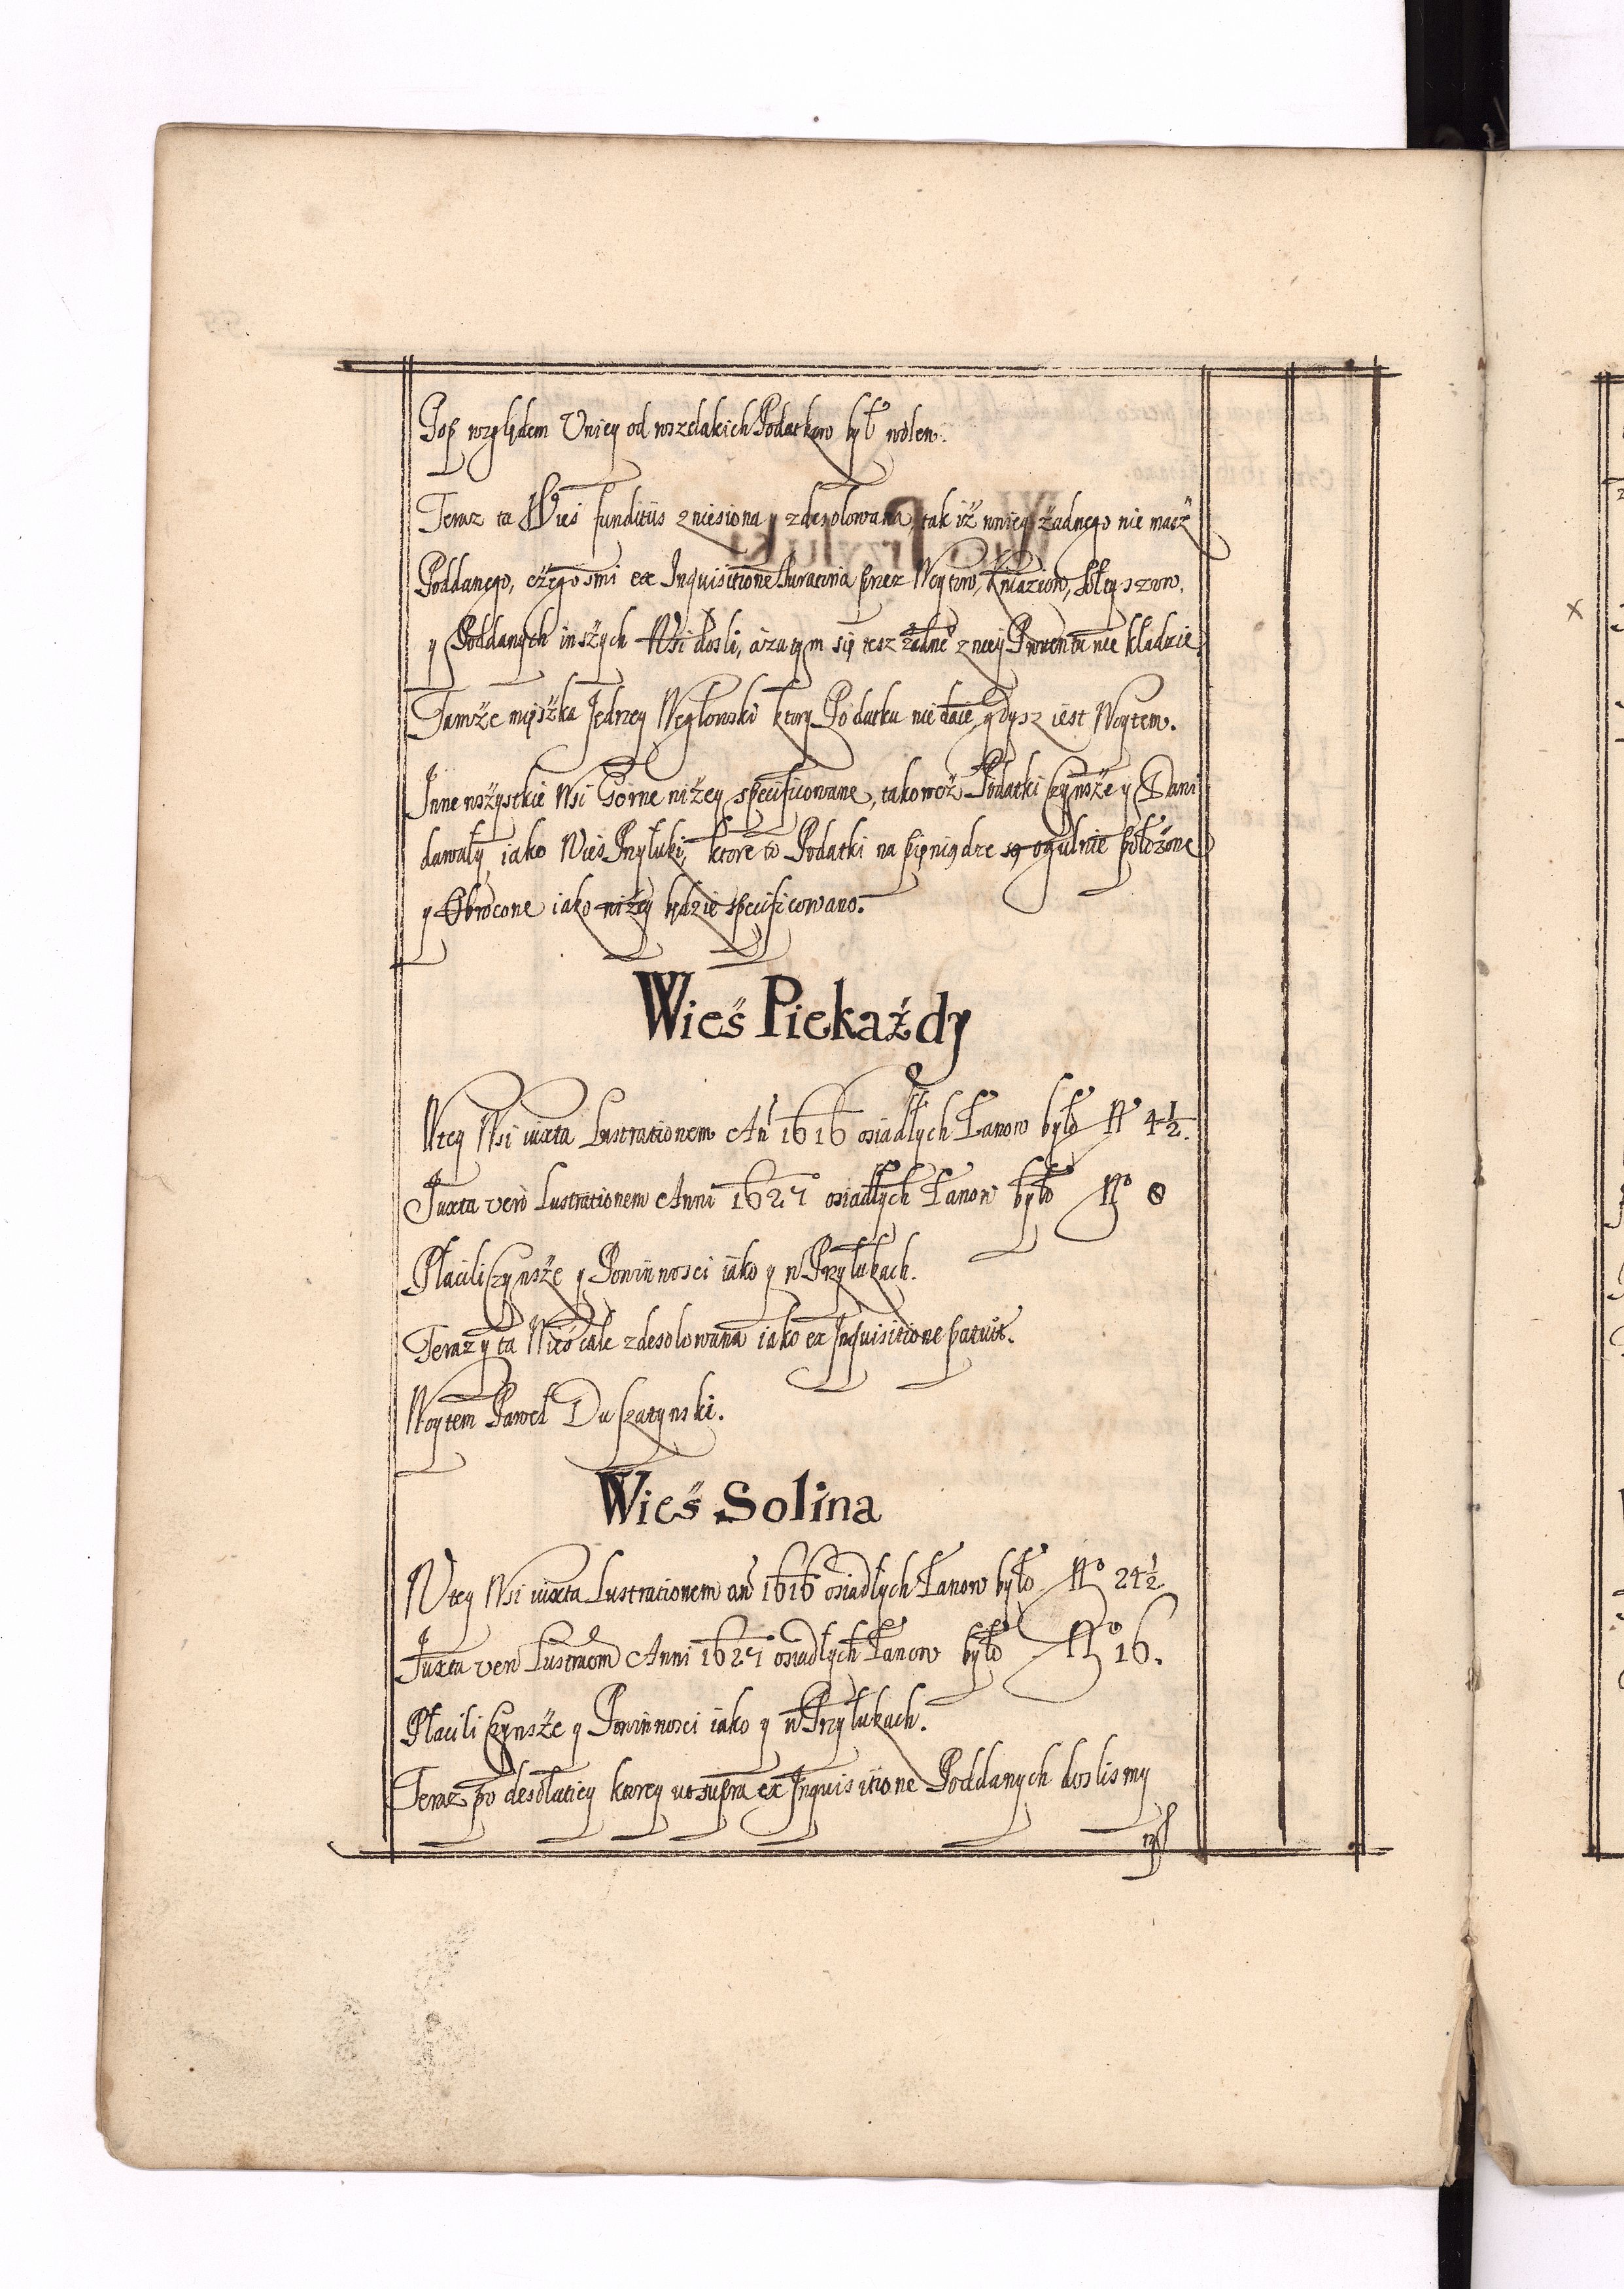 Pop względem Uniey od wszelakich Podatkow był wolen.
Teraz ta Wieś funditus zniesiona y zdesolowana, tak iż wniey żadnego nie masz
Poddanego, czegosmi ex Inquisitione Iuratoria przez Woytow, Kniaziow, Sołtyszow,
y Poddanych inszych Wsi dosli, azatym się tesz żadne z niey Prowenta nie kładzie.
Tamże mięszka Jędrzey Węglowski ktory Podatku nie daie, gdysz iest Woytem.
Inne wszystkie Wsi Gorne niżey specificowane, takowesz Podatki Czynsze y Dani
dawały, iako Wieś Przyłuki, ktore to Podatki na pieniądze są ogulnie położone
y Obrocone iako niżey będzie specificowano.
Wieś Piekaźdy
Wtey Wsi iuxta Lustrationem An 1616 osiadłych Łanow było Nº 4½.
Juxta vero Lustrationem Anni 1627 osiadłych Łanow było Nº 8
Płacili Czynsze y Powinnosci iako y w Przyłukach.
Teraz y ta Wieś cale zdesolowana iako ex Inquisitione patuit.
Woytem Paweł Duszatynski.
Wieś Solina
Wtey Wsi iuxta Lustrationem an 1616 osiadłych Łanow było Nº 24½
Juxta vero Lustraom Anni 1627 osiadłych Łanow było Nº 16.
Płacili Czynsze y Powinnosci iako y w Przyłukach.
Teraz po desolatiey ktorey ut supra ex Inquisitione Poddanych doslismy